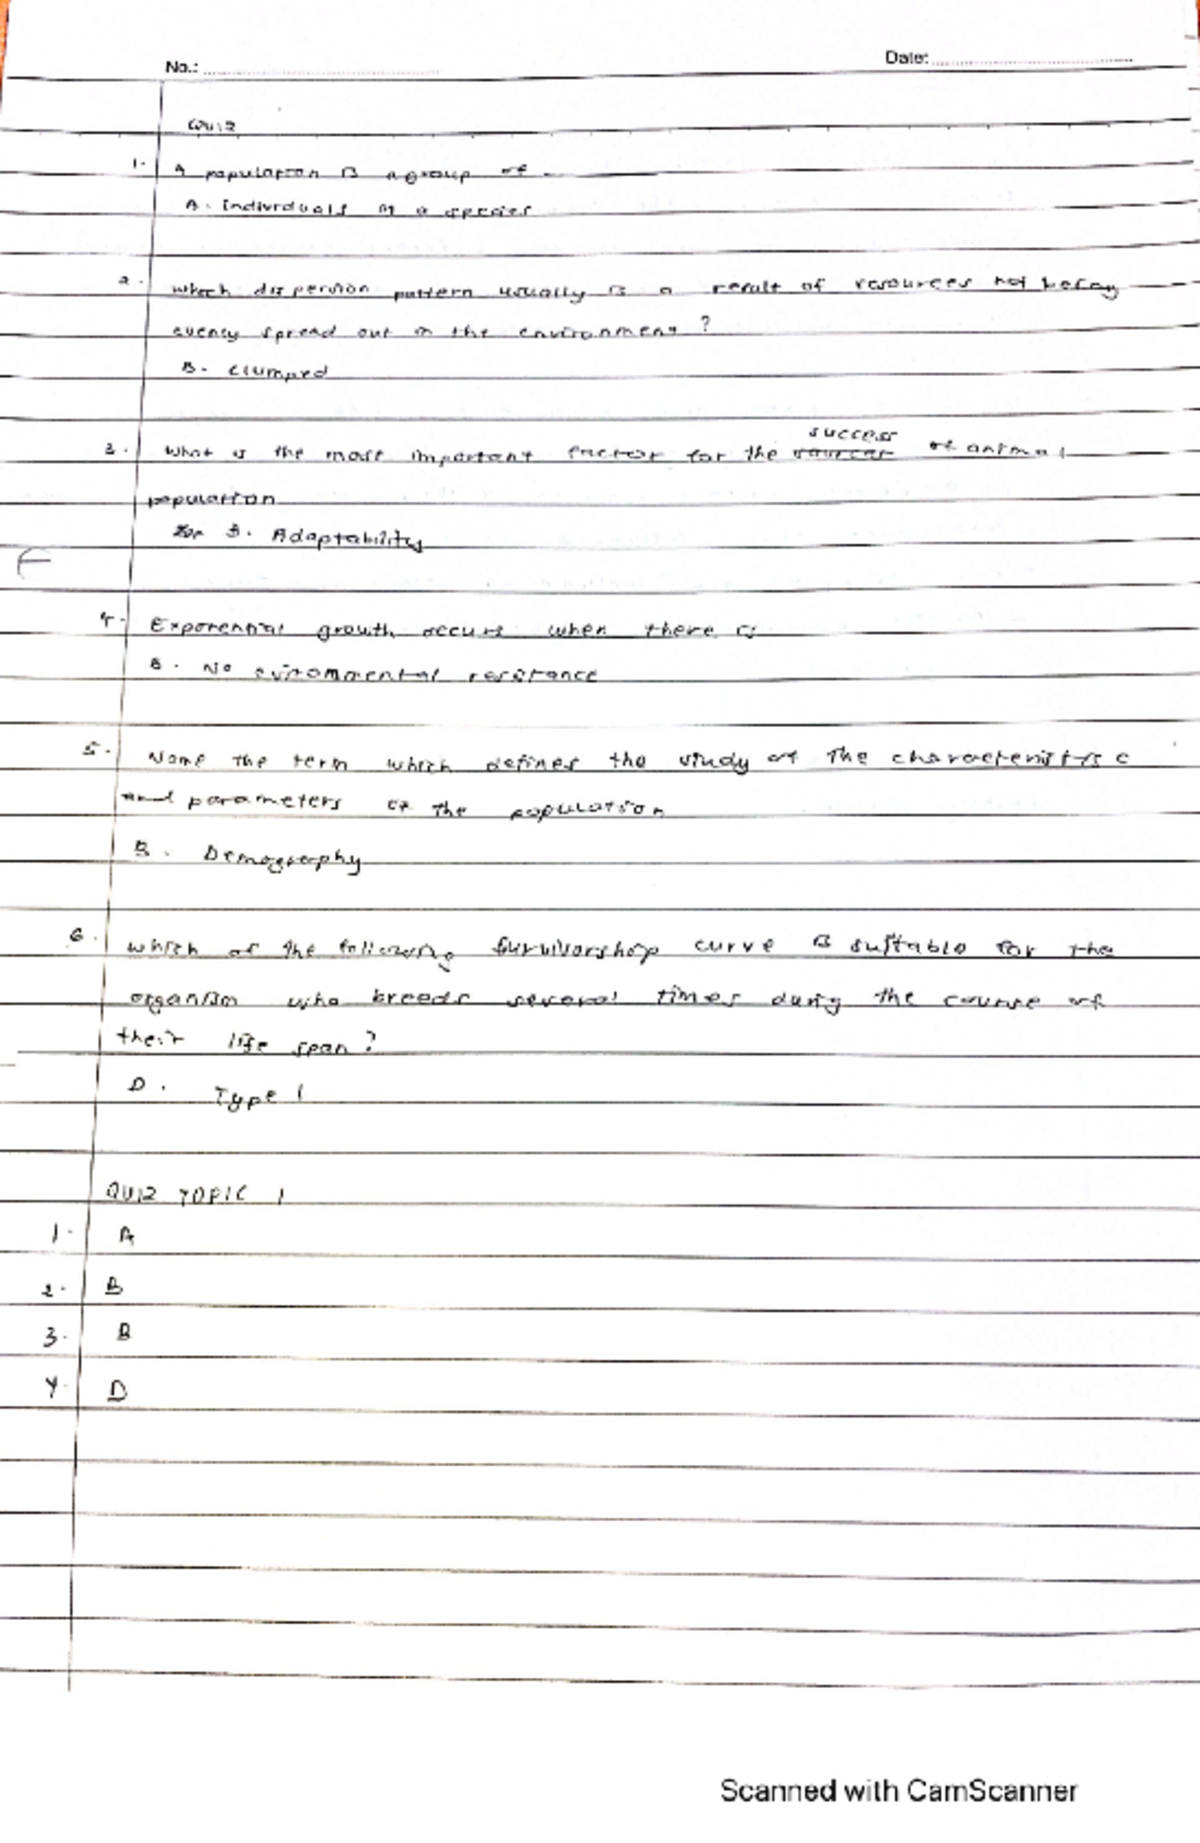 No.:
Date:
Quiz
1. A population is a group of
A. Individuals of a species
2. Which dispersion pattern usually is a result of resources not being
evenly spread out in the environment ?
B. Clumped
success
3. What is the most important factor for the of animal
population
B. Adaptability
4. Exponential growth occurs when there is
B. No evirommental resistance
5. Name the term which defines the study of the characteristic
and parameters of the population
B. Demography
6. which of the following survivorship curve is suitable for the
organism who breeds several times during the course of
their life span ?
D. Type 1
QUIZ TOPIC 1
1. A
2. B
3. B
4. D
Scanned with CamScanner